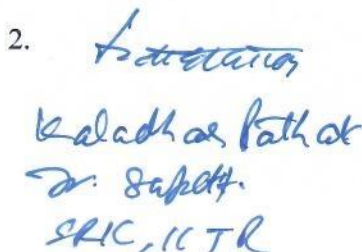 2.
Kaladhar Pathak
Jr. Supdt.
SRIC, IITR